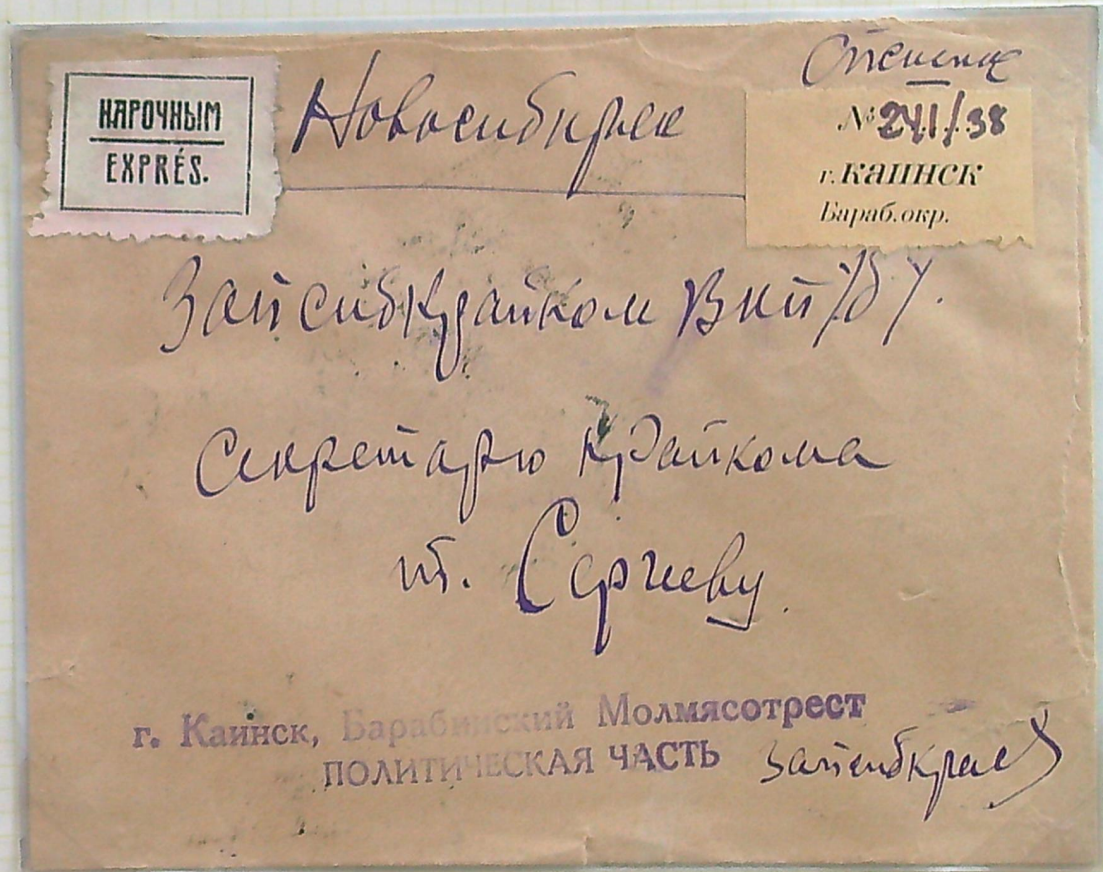 НАРОЧНЫМ
EXPRÉS.
Новосибирск
№ 241/38
г. КАИНСК
Бараб. окр.
Запсибкрайком ВКП/б/.
Секретарю крайкома
т. Сергееву.
г. Каинск, Барабинский Молмясотрест
ПОЛИТИЧЕСКАЯ ЧАСТЬ
Запсибкрая